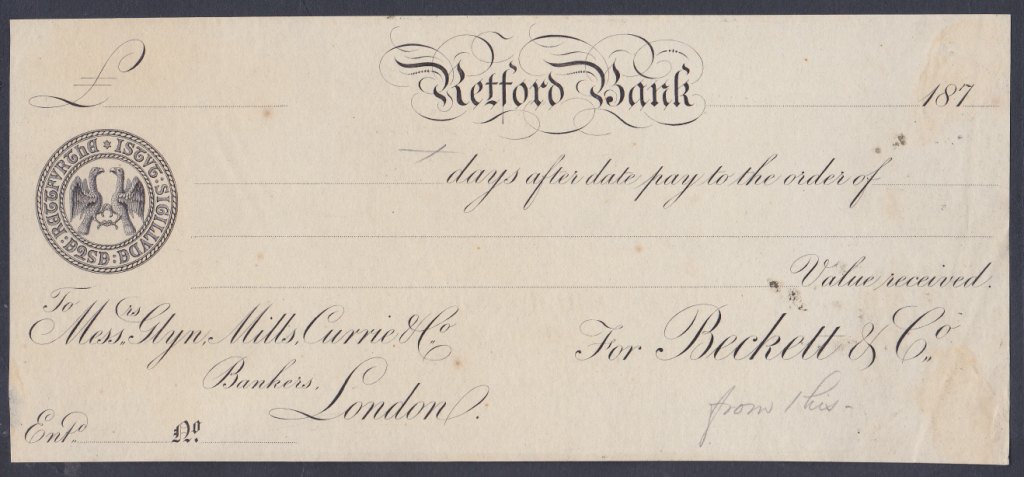 £ Retford Bank 187
days after date pay to the order of
Value received.
To Messrs. Glyn, Mills, Currie & Co.
Bankers,
London.
For Beckett & Co.
from this -
Entd. No.
ISTUT : SIGILLVD
RETTFVRTHE